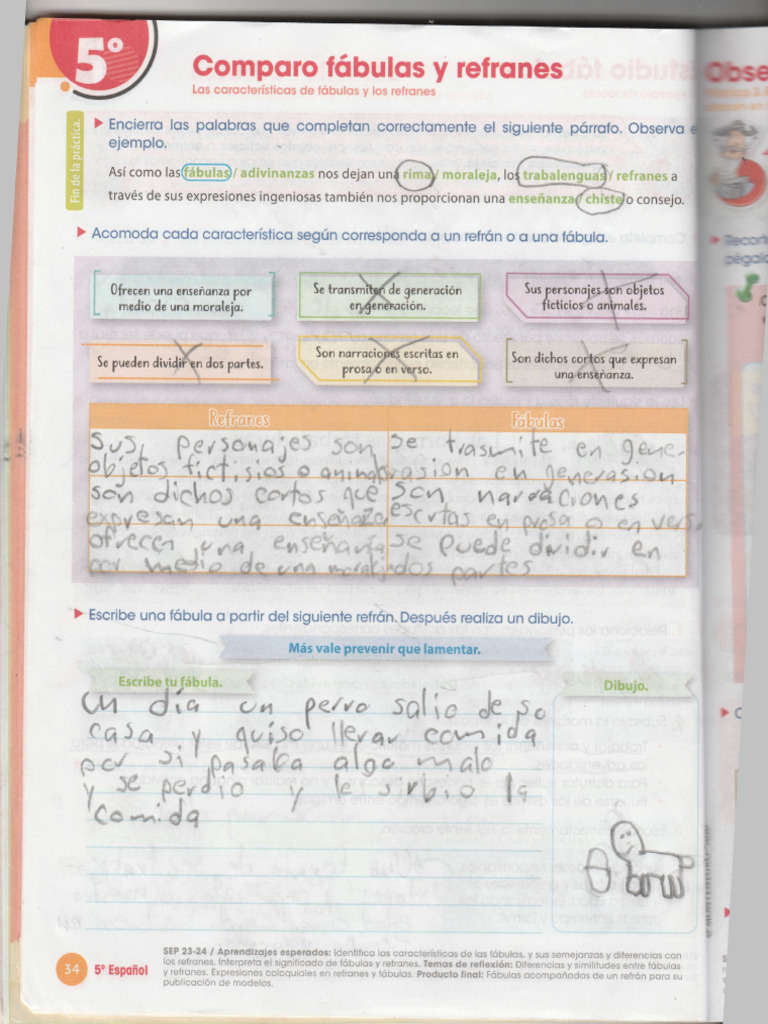 5°
Comparo fábulas y refranes
Las características de fábulas y los refranes
Fin de la práctica.
Encierra las palabras que completan correctamente el siguiente párrafo. Observa e
ejemplo.
Así como las fábulas / adivinanzas nos dejan una rima / moraleja, los trabalenguas / refranes a
través de sus expresiones ingeniosas también nos proporcionan una enseñanza / chiste o consejo.
Acomoda cada característica según corresponda a un refrán o a una fábula.
Ofrecen una enseñanza por
medio de una moraleja.
Se transmiten de generación
en generación.
Sus personajes son objetos
ficticios o animales.
Se pueden dividir en dos partes.
Son narraciones escritas en
prosa o en verso.
Son dichos cortos que expresan
una enseñanza.
Refranes
Fábulas
Sus personajes son
objetos fictisios o animal
son dichos cortos que
expresan una enseñanza
ofrecen una enseñanza
por medio de una moraleja
se trasmite en gene
rasion en generasion
son narraciones
escrtas en presa o en vers
se puede dividir en
dos partes
Escribe una fábula a partir del siguiente refrán. Después realiza un dibujo.
Más vale prevenir que lamentar.
Escribe tu fábula.
Dibujo.
un día un perro salio de so
casa y quiso llevar comida
por si pasaba algo malo
y se perdio y le sirbio la
comida
34
5° Español
SEP 23-24 / Aprendizajes esperados: Identifica las características de las fábulas, y sus semejanzas y diferencias con
los refranes. Interpreta el significado de fábulas y refranes. Temas de reflexión: Diferencias y similitudes entre fábulas
y refranes. Expresiones coloquiales en refranes y fábulas. Producto final: Fábulas acompañadas de un refrán para su
publicación de modelos.
Obse
Recort
pégal